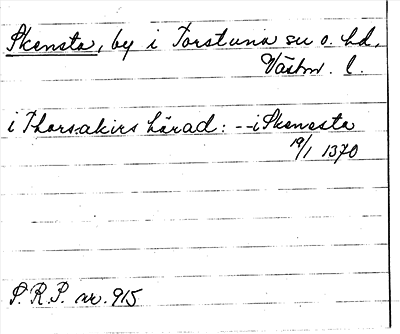 Skensta, by i Torstuna sn o. hd,
Västm. l.
i Thorsakirs hărad: -- i Skenesta
19/1 1370
S.R.P. nr. 915